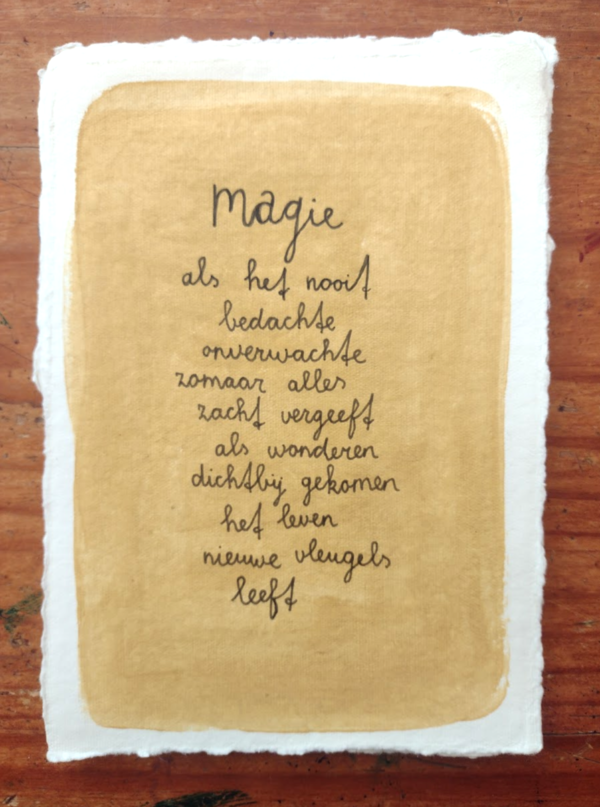 Magie
als het nooit
bedachte
onverwachte
zomaar alles
zacht vergeeft
als wonderen
dichtbij gekomen
het leven
nieuwe vleugels
leeft